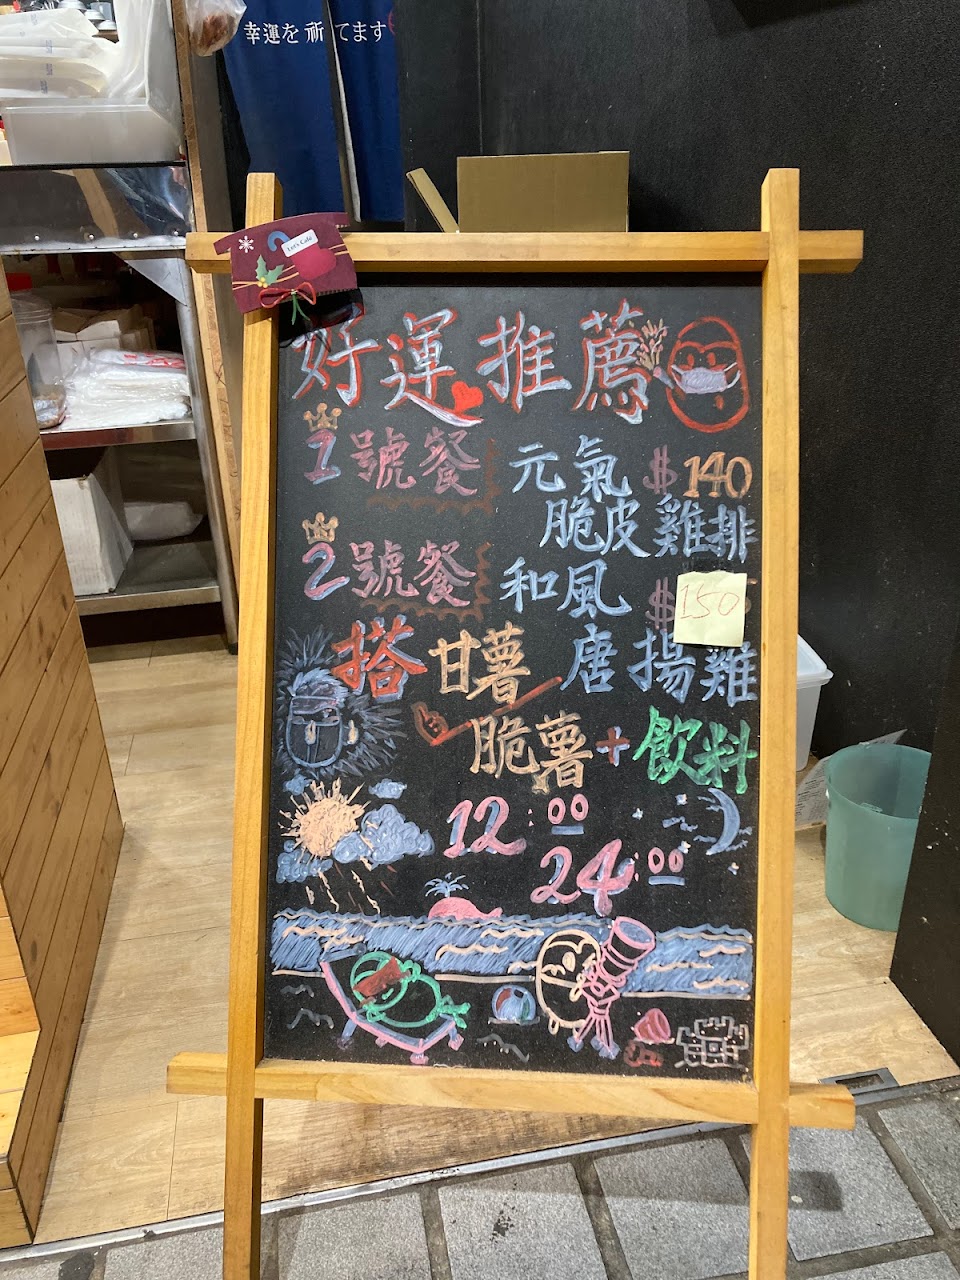 幸運を祈てます
Let's Café
好運推薦
1號餐 元氣 $140
脆皮雞排
2號餐 和風 $150
搭 甘薯 唐揚雞
脆薯+飲料
12:00
24:00